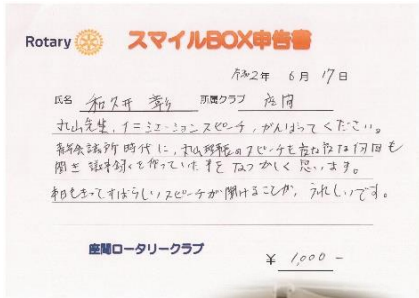 Rotary スマイルBOX申告書
令和2年 6月 17日
氏名 和久井 彰 所属クラブ 座間
丸山先生、イニシエーションスピーチ、がんばってください。
青年会議所時代に、丸山理事長のスピーチを夜な夜な何回も
聞き 議事録を作っていた事をなつかしく思います。
すばらしいスピーチが聞けることが、うれしいです。
座間ロータリークラブ
¥ 1,000 -